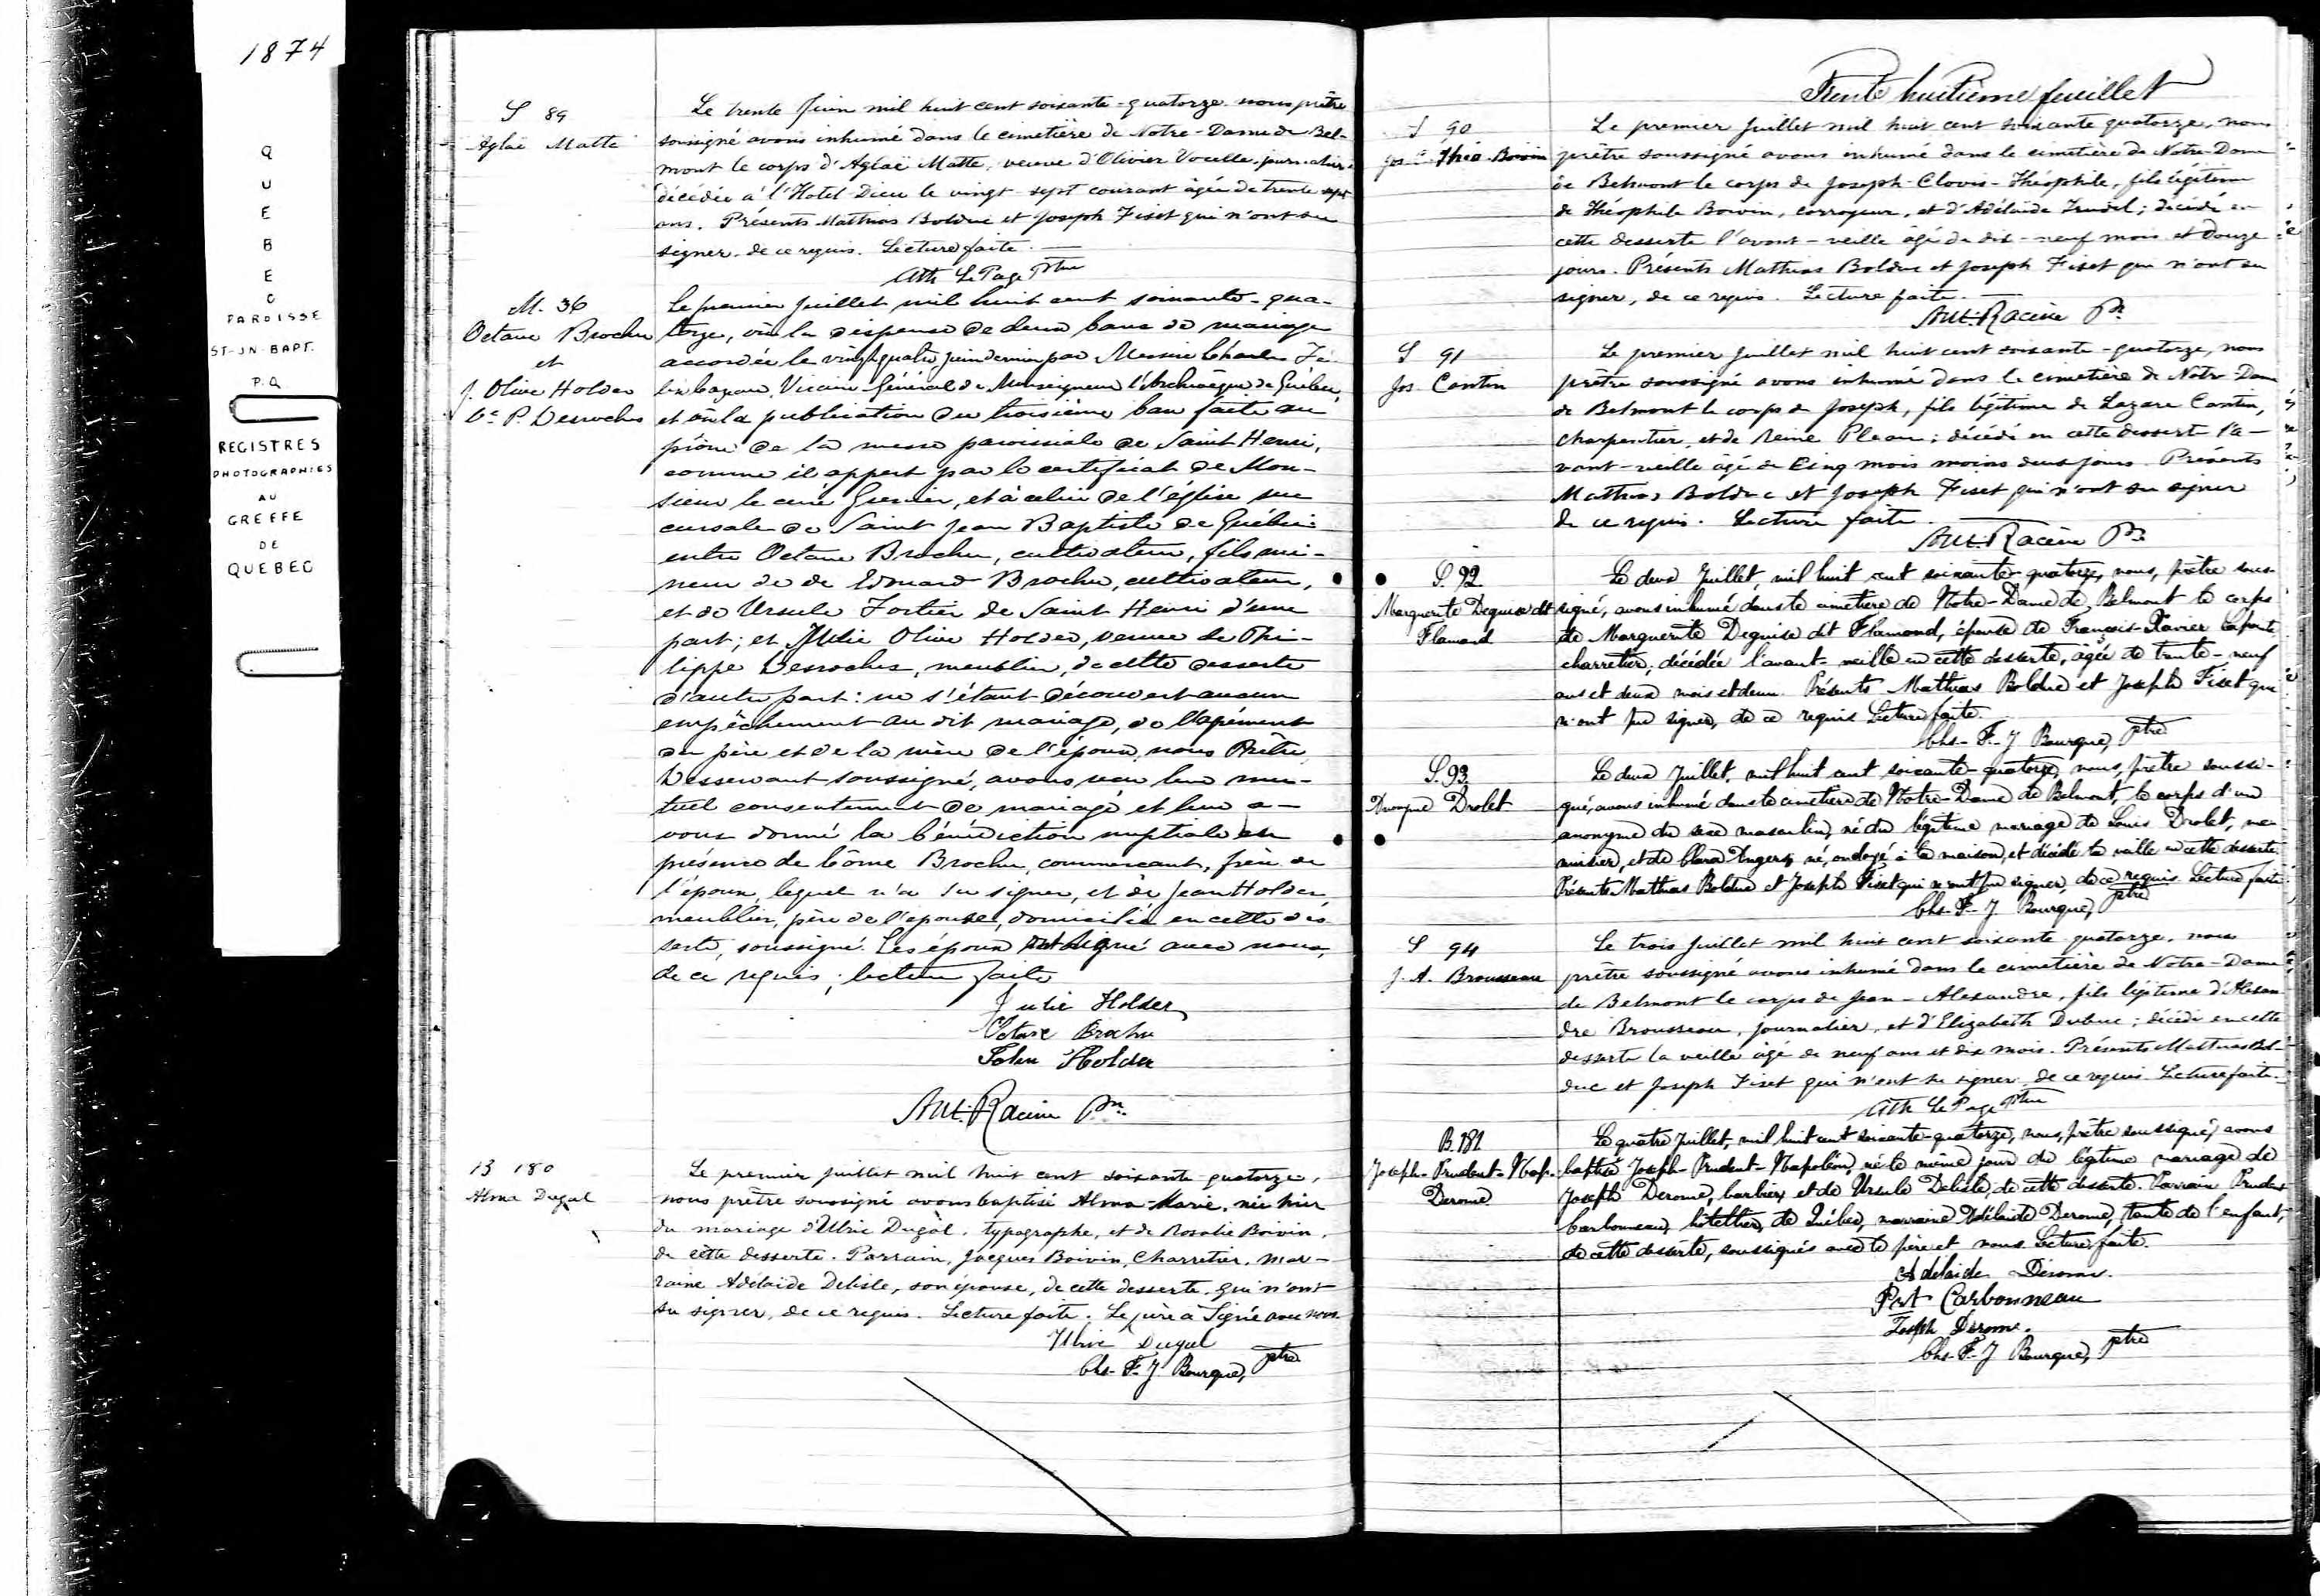 1874
QUEBEC
PAROISSE
ST-JN-BAPT.
P.Q
REGISTRES
PHOTOGRAPHIES
AU
GREFFE
DE
QUEBEC
S 89
Aglaë Matte
Le trente Juin mil huit cent soixante-quatorze nous prêtre
soussigné avons inhumé dans le cimetière de Notre-Dame de Bel-
mont le corps d'Aglaë Matte, veuve d'Olivier Vocelle, journalier
décédée à l'Hotel-Dieu le vingt-sept courant âgée de trente sept
ans. Présents Mathias Bolduc et Joseph Fiset qui n'ont su
signer, de ce requis. Lecture faite.
Ath. LePage Ptre
M. 36
Octave Brochu
et
J. Olive Holder
Ve P. Desroches
Le premier Juillet mil huit cent soixante-qua-
torze, vu la dispense de deux bans de mariage
accordée le vingt quatre juin dernier par Messire Charles Fé-
lix Cazeau, Vicaire-Général de Monseigneur l'Archevêque de Québec,
et vu la publication du troisième ban faite au
prône de la messe paroissiale de Saint Henri,
comme il appert par le certificat de Mon-
sieur le curé Grenier, et à celui de l'église suc
cursale de Saint Jean Baptiste de Québec
entre Octave Brochu, cultivateur, fils mi-
neur de de Edouard Brochu, cultivateur,
et de Ursule Fortier de Saint Henri d'une
part; et Julie Olive Holder, veuve de Phi-
lippe Desroches, meublier, de cette desserte
d'autre part: ne s'étant découvert aucun
empêchement au dit mariage, de l'agrément
du père et de la mère de l'époux, nous Prêtre
Desservant soussigné, avons reçu leur mu-
tuel consentement de mariage et leur a-
vons donné la bénédiction nuptiale en
présence de Côme Brochu, commerçant, frère de
l'époux, lequel n'a su signer, et de Jean Holder
meublier, père de l'épouse, domicilié en cette des
serte, soussigné. Les époux ont signé avec nous,
de ce requis; lecture faite
Julie Holder
Octave Brochu
John Holder
Ant. Racine Ptre
B 180
Alma Dugal
Le premier juillet mil huit cent soixante quatorze,
nous prêtre soussigné avons baptisé Alma-Marie, née hier
du mariage d'Ulric Dugal, typographe, et de Rosalie Boivin,
de cette desserte. Parrain, Jacques Boivin, Charretier, mar-
raine Adelaïde Delisle, son épouse, de cette desserte, qui n'ont
su signer, de ce requis. Lecture faite. Le père a signé avec nous.
Ulric Dugal
Chs-F-J Bourque, ptre
Trente huitième feuillet
S 90
Jos C Théo. Boivin
Le premier Juillet mil huit cent soixante quatorze, nous
prêtre soussigné avons inhumé dans le cimetière de Notre-Dame
de Belmont le corps de Joseph-Clovis-Théophile, fils légitime
de Théophile Boivin, corroyeur, et d'Adélaïde Trudel; décédé en
cette desserte l'avant-veille âgé de dix-neuf mois et douze
jours. Présents Mathias Bolduc et Joseph Fiset qui n'ont su
signer, de ce requis. Lecture faite.
Ant. Racine Ptre
S 91
Jos. Cantin
Le premier Juillet mil huit cent soixante-quatorze, nous
prêtre soussigné avons inhumé dans le cimetière de Notre-Dame
de Belmont le corps de Joseph, fils légitime de Lazare Cantin,
charpentier, et de Reine Pleau; décédé en cette desserte l'a-
vant-veille âgé de cinq mois moins deux jours. Présents
Mathias Bolduc et Joseph Fiset qui n'ont su signer
de ce requis. Lecture faite.
Ant. Racine Ptre
S. 92
Marguerite Deguise dit
Flamand
Le deux Juillet, mil huit cent soixante-quatorze, nous, prêtre sous-
signé, avons inhumé dans le cimetière de Notre-Dame de Belmont le corps
de Marguerite Deguise dit Flamond, épouse de François-Xavier Laporte
charretier, décédée l'avant-veille en cette desserte, âgée de trente-neuf
ans et deux mois et demi. Présents Mathias Bolduc et Joseph Fiset qui
n'ont pu signer, de ce requis Lecture faite.
Chs-F-J Bourque, ptre
S. 93
Anonyme Drolet
Le deux Juillet, mil huit cent soixante-quatorze, nous, prêtre soussi-
gné, avons inhumé dans le cimetière de Notre-Dame de Belmont, le corps d'un
anonyme du sexe masculin, né du légitime mariage de Louis Drolet, me-
nuisier, et de Clara Angers, né, ondoyé à la maison, et décédé la veille en cette desserte
Présents Mathias Bolduc et Joseph Fiset qui n'ont pu signer, de ce requis Lecture faite.
Chs-F-J Bourque, ptre
S 94
J. A. Brousseau
Le trois Juillet mil huit cent soixante quatorze, nous
prêtre soussigné avons inhumé dans le cimetière de Notre-Dame
de Belmont le corps de Jean-Alexandre, fils légitime d'Alexan
dre Brousseau, journalier, et d'Elizabeth Dubuc; décédé en cette
desserte la veille âgé de neuf ans et dix mois. Présents Mathias Bol-
duc et Joseph Fiset qui n'ont su signer, de ce requis. Lecture faite.
Ath LePage Ptre
B. 181
Joseph-Prudent-Nap.
Derome
Le quatre Juillet, mil huit cent soixante-quatorze, nous, prêtre soussigné, avons
baptisé Joseph-Prudent-Napoléon, né le même jour du légitime mariage de
Joseph Derome, barbier, et de Ursule Delisle, de cette desserte. Parrain Prudent
Carbonneau, hôtellier, de Québec, marraine Adélaïde Derome, tante de l'enfant,
de cette desserte, soussignés avec le père et nous. Lecture faite.
Adelaide Derome.
Prt Carbonneau
Joseph Derome.
Chs-F-J Bourque, ptre